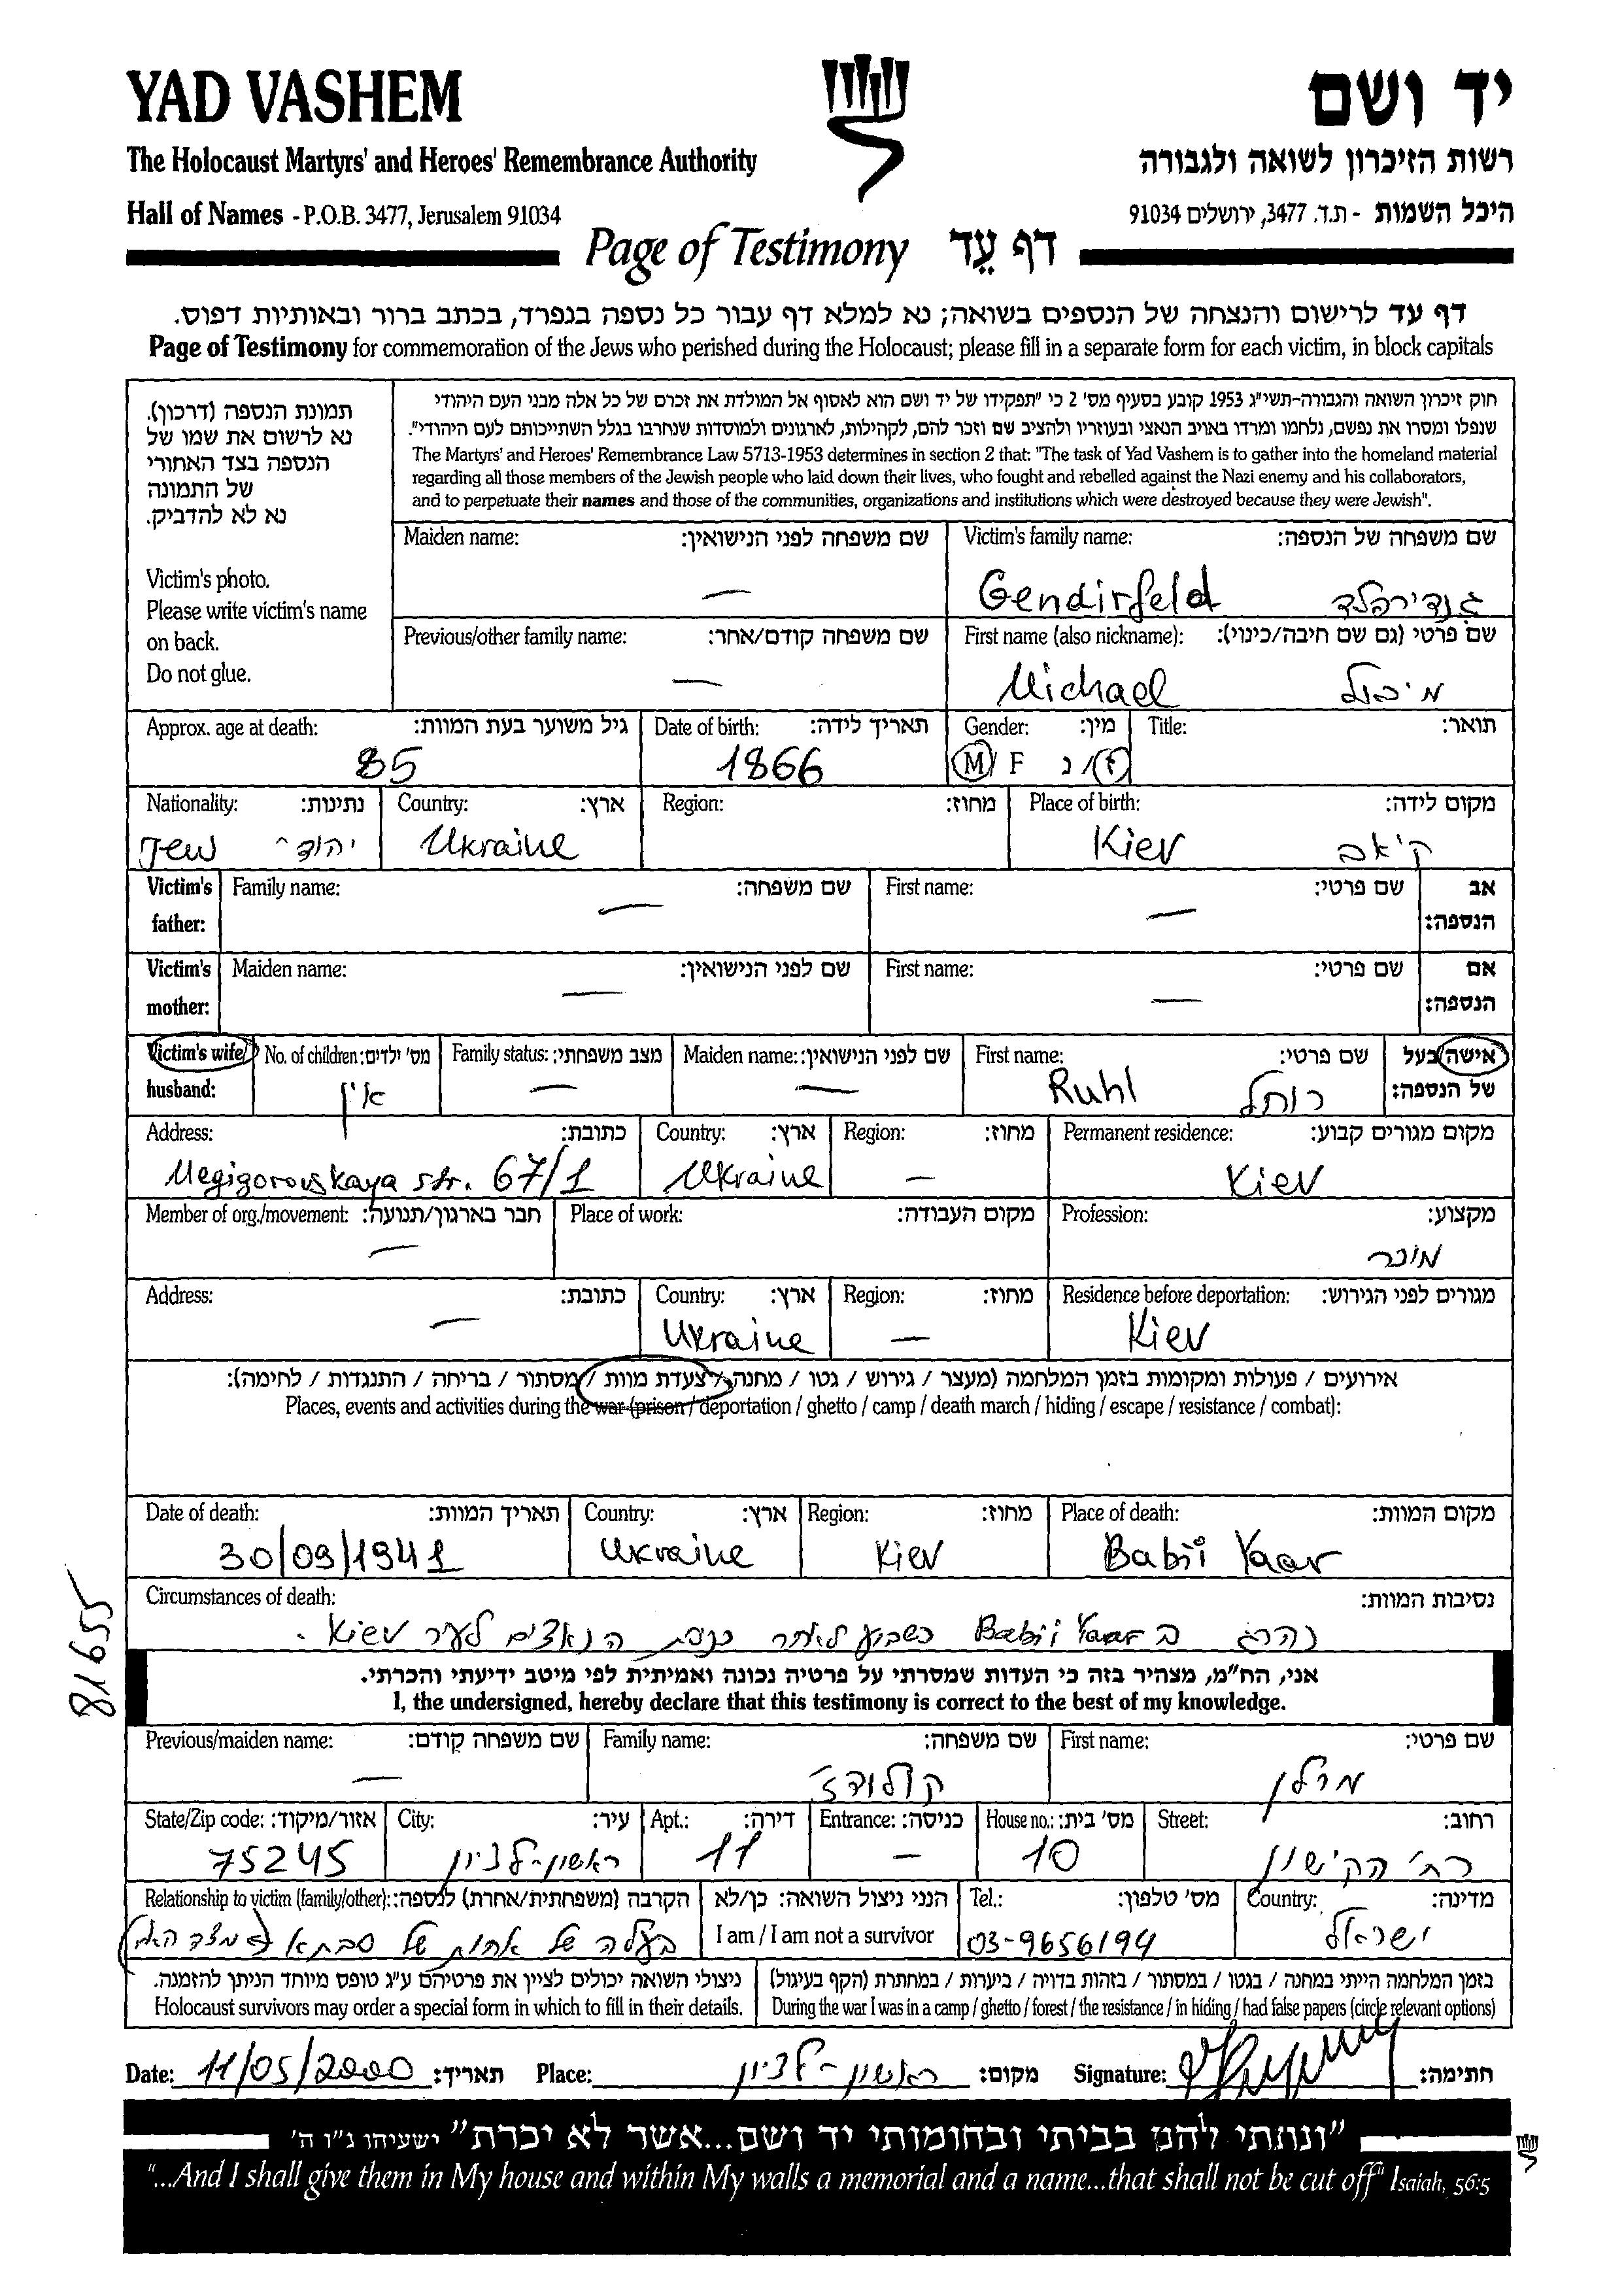 YAD VASHEM
יד ושם
The Holocaust Martyrs' and Heroes' Remembrance Authority
רשות הזיכרון לשואה ולגבורה
Hall of Names - P.O.B. 3477, Jerusalem 91034
היכל השמות - ת.ד. 3477, ירושלים 91034
Page of Testimony דף עֵד
דף עד לרישום והנצחה של הנספים בשואה; נא למלא דף עבור כל נספה בנפרד, בכתב ברור ובאותיות דפוס.
Page of Testimony for commemoration of the Jews who perished during the Holocaust; please fill in a separate form for each victim, in block capitals
תמונת הנספה (דרכון).
נא לרשום את שמו של
הנספה בצד האחורי
של התמונה
נא לא להדביק.
Victim's photo.
Please write victim's name
on back.
Do not glue.
חוק זיכרון השואה והגבורה-תשי"ג 1953 קובע בסעיף מס' 2 כי "תפקידו של יד ושם הוא לאסוף אל המולדת את זכרם של כל אלה מבני העם היהודי
שנפלו ומסרו את נפשם, נלחמו ומרדו באויב הנאצי ובעוזריו ולהציב שם וזכר להם, לקהילות, לארגונים ולמוסדות שנחרבו בגלל השתייכותם לעם היהודי".
The Martyrs' and Heroes' Remembrance Law 5713-1953 determines in section 2 that: "The task of Yad Vashem is to gather into the homeland material
regarding all those members of the Jewish people who laid down their lives, who fought and rebelled against the Nazi enemy and his collaborators,
and to perpetuate their names and those of the communities, organizations and institutions which were destroyed because they were Jewish".
Maiden name: שם משפחה לפני הנישואין: Victim's family name: שם משפחה של הנספה:
— Gendirfeld גנדירפלד
Previous/other family name: שם משפחה קודם/אחר: First name (also nickname): שם פרטי (גם שם חיבה/כינוי):
— Michael מיכאל
Approx. age at death: גיל משוער בעת המוות: Date of birth: תאריך לידה: Gender: מין: Title: תואר:
85 1866 M/ F ז/ נ
Nationality: נתינות: Country: ארץ: Region: מחוז: Place of birth: מקום לידה:
Jew יהודי Ukraine Kiev קיאב
Victim's father: Family name: שם משפחה: First name: שם פרטי: אב הנספה:
— —
Victim's mother: Maiden name: שם לפני הנישואין: First name: שם פרטי: אם הנספה:
— —
Victim's wife/ husband: No. of children: מס' ילדים: Family status: מצב משפחתי: Maiden name: שם לפני הנישואין: First name: שם פרטי: אישה/בעל של הנספה:
אין — — Ruhl רוחל
Address: כתובת: Country: ארץ: Region: מחוז: Permanent residence: מקום מגורים קבוע:
Megigorovskaya str. 67/1 Ukraine — Kiev
Member of org./movement: חבר בארגון/תנועה: Place of work: מקום העבודה: Profession: מקצוע:
— מוכר
Address: כתובת: Country: ארץ: Region: מחוז: Residence before deportation: מגורים לפני הגירוש:
— Ukraine — Kiev
אירועים / פעולות ומקומות בזמן המלחמה (מעצר / גירוש / גטו / מחנה / צעדת מוות / מסתור / בריחה / התנגדות / לחימה):
Places, events and activities during the war (prison / deportation / ghetto / camp / death march / hiding / escape / resistance / combat):
Date of death: תאריך המוות: Country: ארץ: Region: מחוז: Place of death: מקום המוות:
30/09/1941 Ukraine Kiev Babii Yaar
Circumstances of death: נסיבות המוות:
נהרג ב Babii Yaar כשבוע לאחר כניסת הנאצים לעיר Kiev.
81655
אני, הח"מ, מצהיר בזה כי העדות שמסרתי על פרטיה נכונה ואמיתית לפי מיטב ידיעתי והכרתי.
I, the undersigned, hereby declare that this testimony is correct to the best of my knowledge.
Previous/maiden name: שם משפחה קודם: Family name: שם משפחה: First name: שם פרטי:
— קולודז' מרלן
State/Zip code: אזור/מיקוד: City: עיר: Apt.: דירה: Entrance: כניסה: House no.: מס' בית: Street: רחוב:
75245 ראשון-לציון 11 — 10 רח' הקישון
Relationship to victim (family/other): הקרבה (משפחתית/אחרת) לנספה: הנני ניצול השואה: כן/לא Tel.: מס' טלפון: Country: מדינה:
בעלה של אחות של סבתא (מצד האם) I am / I am not a survivor 03-9656194 ישראל
ניצולי השואה יכולים לציין את פרטיהם ע"ג טופס מיוחד הניתן להזמנה. בזמן המלחמה הייתי במחנה / בגטו / במסתור / בזהות בדויה / ביערות / במחתרת (הקף בעיגול)
Holocaust survivors may order a special form in which to fill in their details. During the war I was in a camp / ghetto / forest / the resistance / in hiding / had false papers (circle relevant options)
Date: 11/05/2000 תאריך: Place: ראשון-לציון מקום: Signature: חתימה:
"ונתתי להם בביתי ובחומותי יד ושם...אשר לא יכרת" ישעיהו נ"ו ה'
"...And I shall give them in My house and within My walls a memorial and a name...that shall not be cut off" Isaiah, 56:5